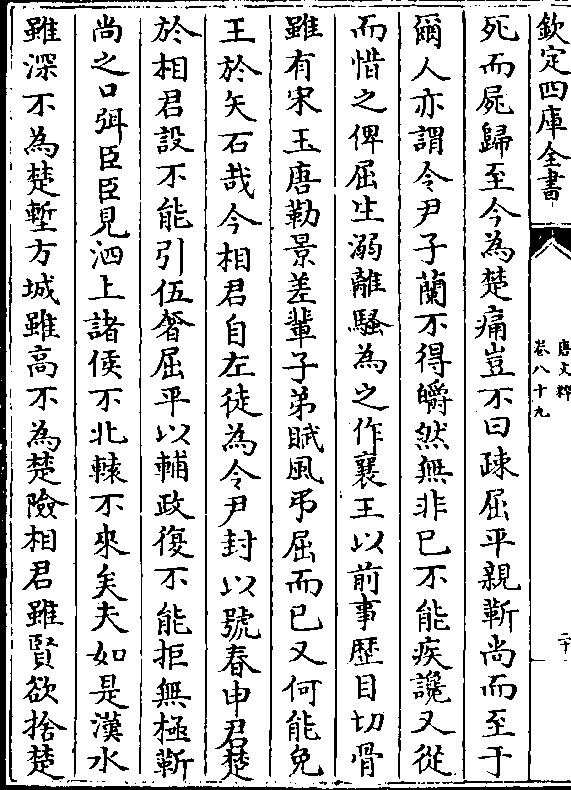 欽定四庫全書
唐文粹
卷八十九
二十
死而屍歸至今為楚痛豈不曰疎屈平親靳尚而至于
爾人亦謂令尹子蘭不得皭然無非已不能疾讒又從
而惜之俾屈生溺離騷為之作襄王以前事歷目切骨
雖有宋玉唐勒景差輩子弟賦風弔屈而已又何能免
王於矢石哉今相君自左徒為令尹封以號春申君楚
於相君設不能引伍奢屈平以輔政復不能拒無極靳
尚之口弭臣臣見泗上諸侯不北轅不來矣夫如是漢水
雖深不為楚塹方城雖高不為楚險相君雖賢欲捨楚